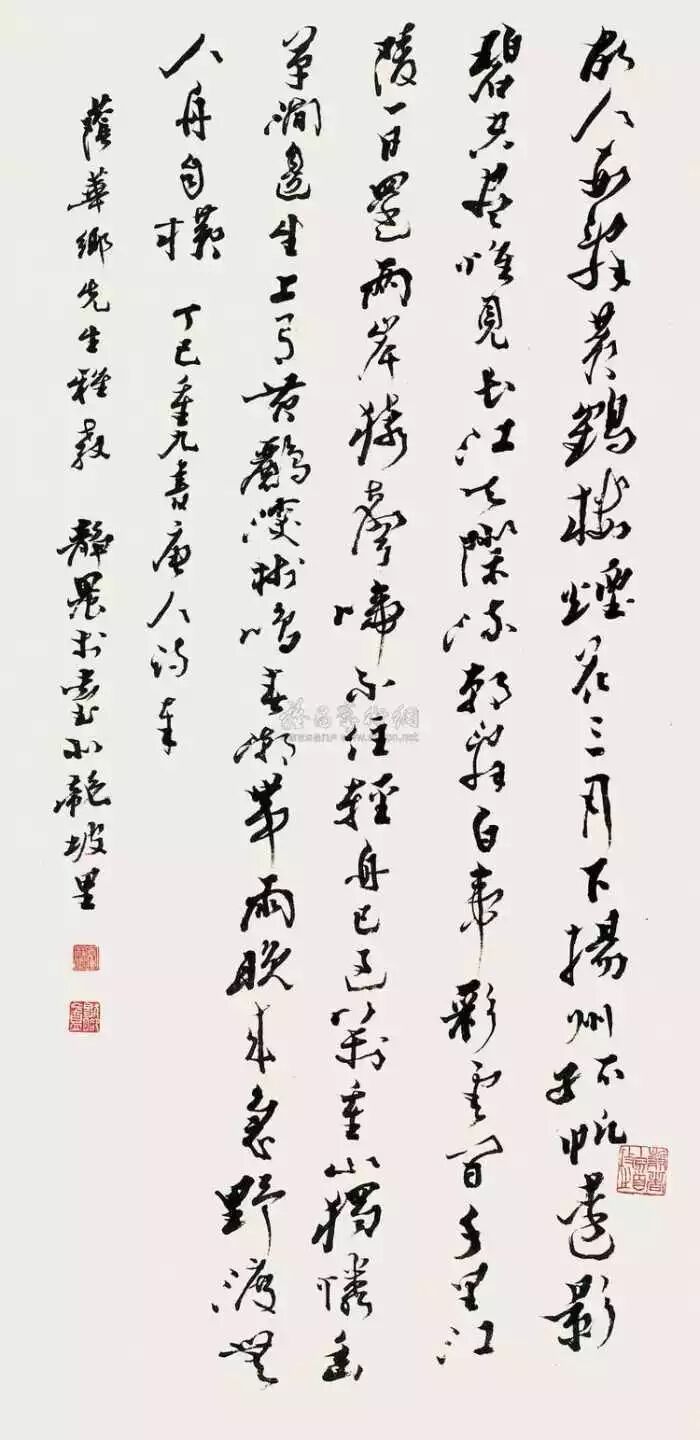 故人西辭黃鶴樓煙花三月下揚州孤帆遠影
碧空盡唯見長江天際流朝辭白帝彩雲間千里江
陵一日還兩岸猿聲啼不住輕舟已過萬重山獨憐幽
草澗邊生上有黃鸝深樹鳴春潮帶雨晚來急野渡無
人舟自橫 丁巳重九書唐人詩奉
蔭華鄉先生雅教 靜農於臺北龍坡里